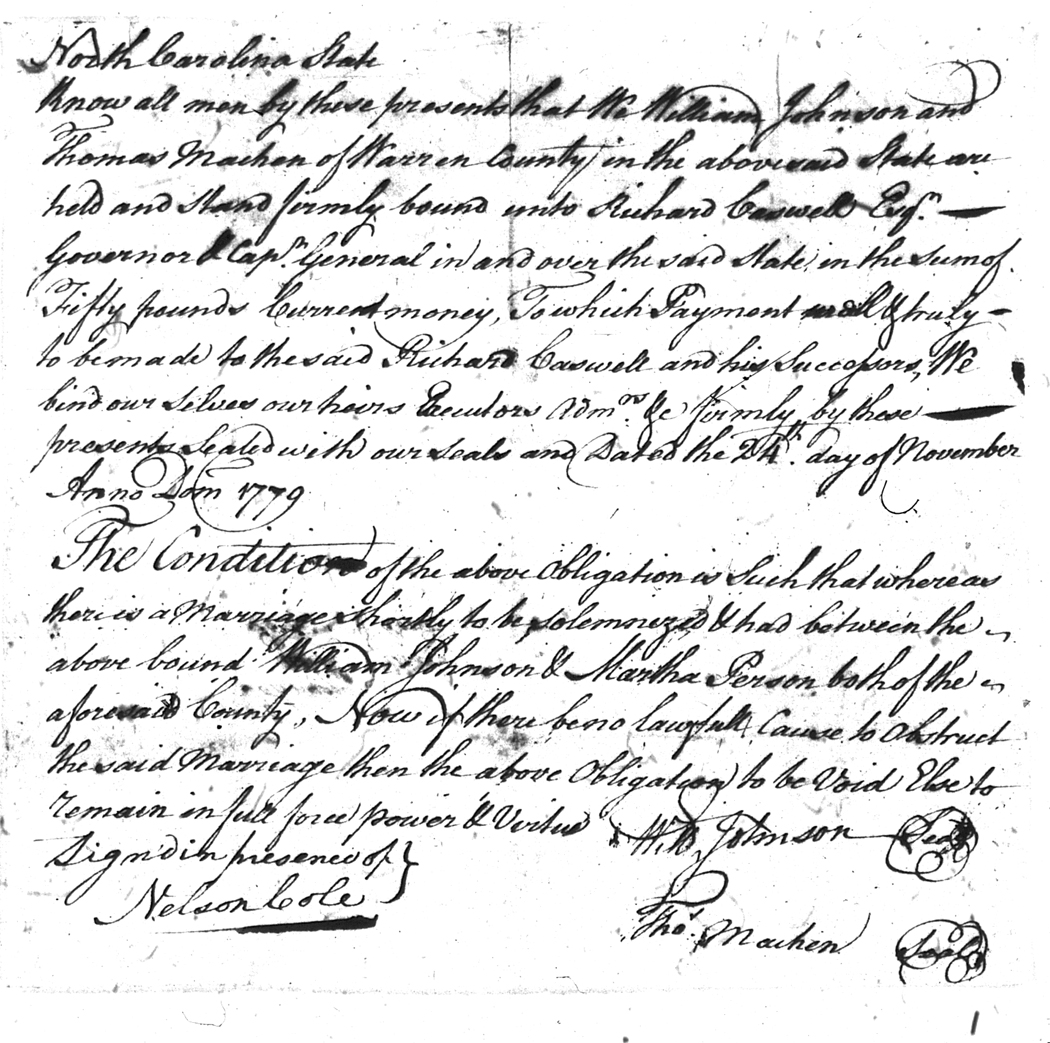 North Carolina State
Know all men by these presents that We William Johnson and
Thomas Machen of Warren County in the abovesaid State are
held and stand firmly bound unto Richard Caswell Esqr.
Governor & Capn. General in and over the said State, in the sum of
Fifty pounds Current money, To which Payment well & truly
to be made to the said Richard Caswell and his Successors, We
bind our Selves our heirs Executors Admors. &c firmly by these
presents Sealed with our seals and Dated the 24th. day of November
Anno Dom 1779
The Condition of the above Obligation is Such that whereas
there is a Marriage Shortly to be Solemnezed & had between the
above bound William Johnson & Martha Person both of the
aforesaid County, Now if there be no lawfull Cause to Obstruct
the said Marriage then the above Obligation to be Void Else to
remain in full force power & Virtue Wm. Johnson Seal
Sign'd in presence of }
Nelson Cole
Thos. Machen Seal
1